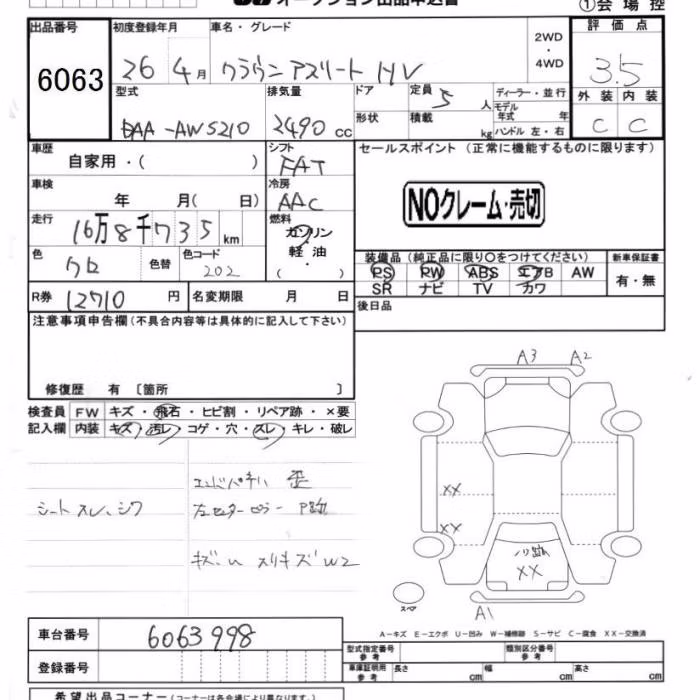 オークション出品申込書
①会場控
出品番号 初度登録年月 車名・グレード 評価点
6063 26 4月 クラウンアスリートHV 2WD・4WD 3.5
型式 排気量 ドア 定員 ディーラー・並行 外装 内装
DAA-AWS210 2490cc 形状 積載 5人 kg モデル年式 年 ハンドル 左・右 C C
車歴 シフト セールスポイント (正常に機能するものに限ります)
自家用・( ) FAT
車検 冷房
年 月( 日) AAC NOクレーム・売切
走行 燃料
16万8千735km ガソリン
軽油
・
( )
色 色替 色コード 装備品(純正品に限り○をつけてください) 新車保証書
クロ 202 PS PW ABS エアB AW 有・無
SR ナビ TV カワ
R券 12710円 名変期限 月 日 後日品
注意事項申告欄(不具合内容等は具体的に記入して下さい)
修復歴 有 〔箇所 〕
検査員 FW キズ・飛石・ヒビ割・リペア跡・×要
記入欄 内装 キズ・汚レ・コゲ・穴・スレ・キレ・破レ
シートスレ、シワ
エンドパネル 歪
左センターピラー P跡
キズ:u スリキズW2
A3 A2
XX
XX
ノリ跡
XX
スペア
A1
A-キズ E-エクボ U-凹み W-補修跡 S-サビ C-腐食 XX-交換済
車台番号 6063998
登録番号
型式指定番号 参考 類別区分番号 参考
車庫証明用 参考 長さ cm 幅 cm 高さ cm
希望出品コーナー(コーナーは各会場により異なります。)